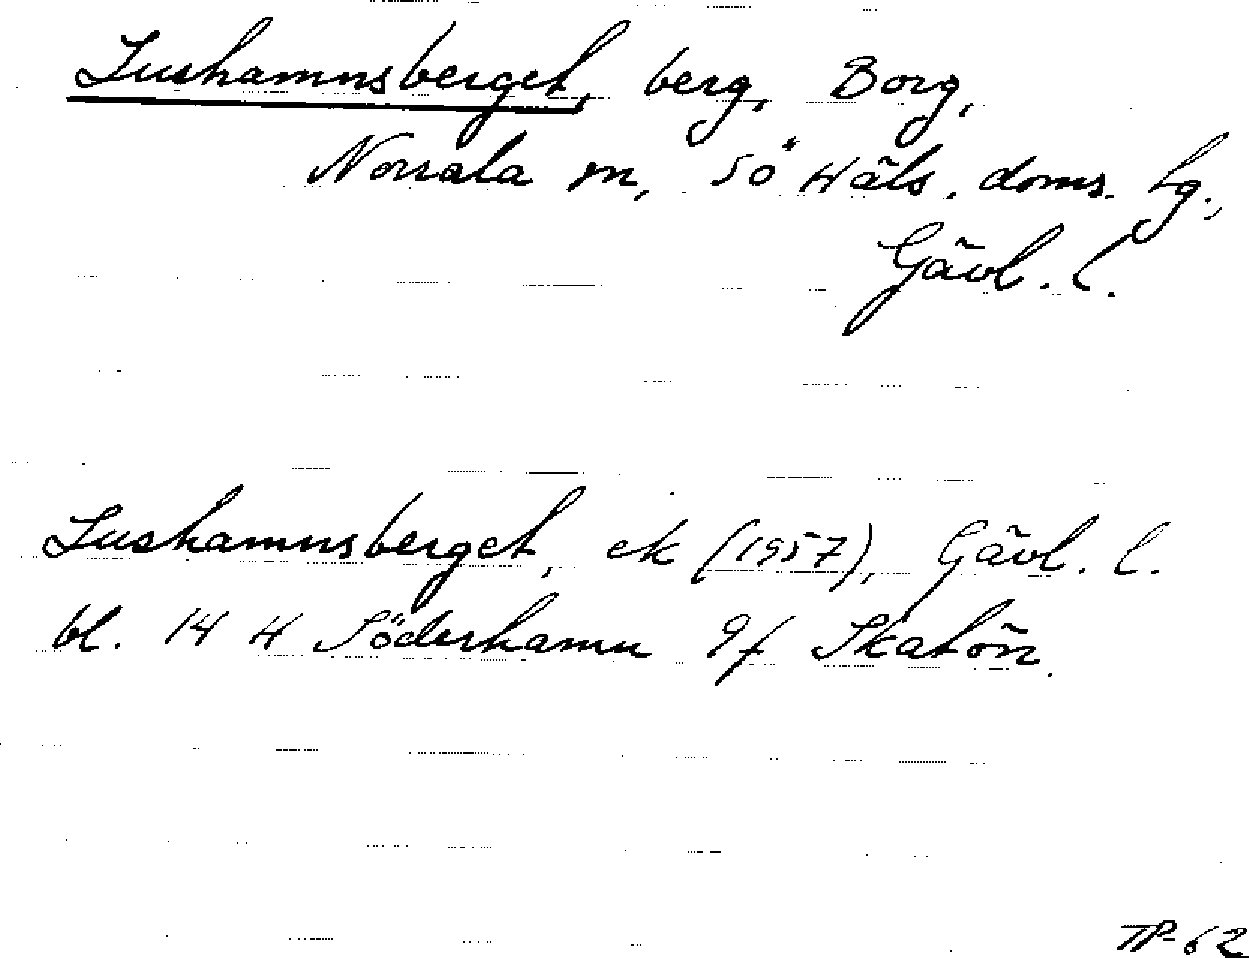 Lushamnsberget, berg, Borg,
Norrala sn, Sö Häls. doms. hg.,
Gävl. l.
Lushamnsberget, ek (1957), Gävl. l.
bl. 14 H Söderhamn 9f Skatön.
TP-62